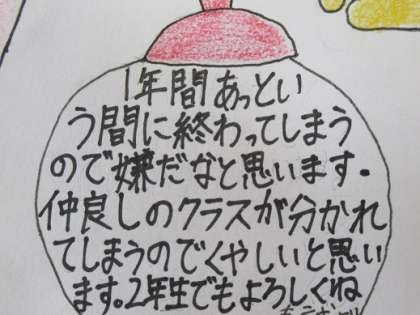 1年間あっとい
う間に終わってしまう
ので嫌だなと思います.
仲良しのクラスが分かれ
てしまうのでくやしいと思い
ます。2年生でもよろしくね